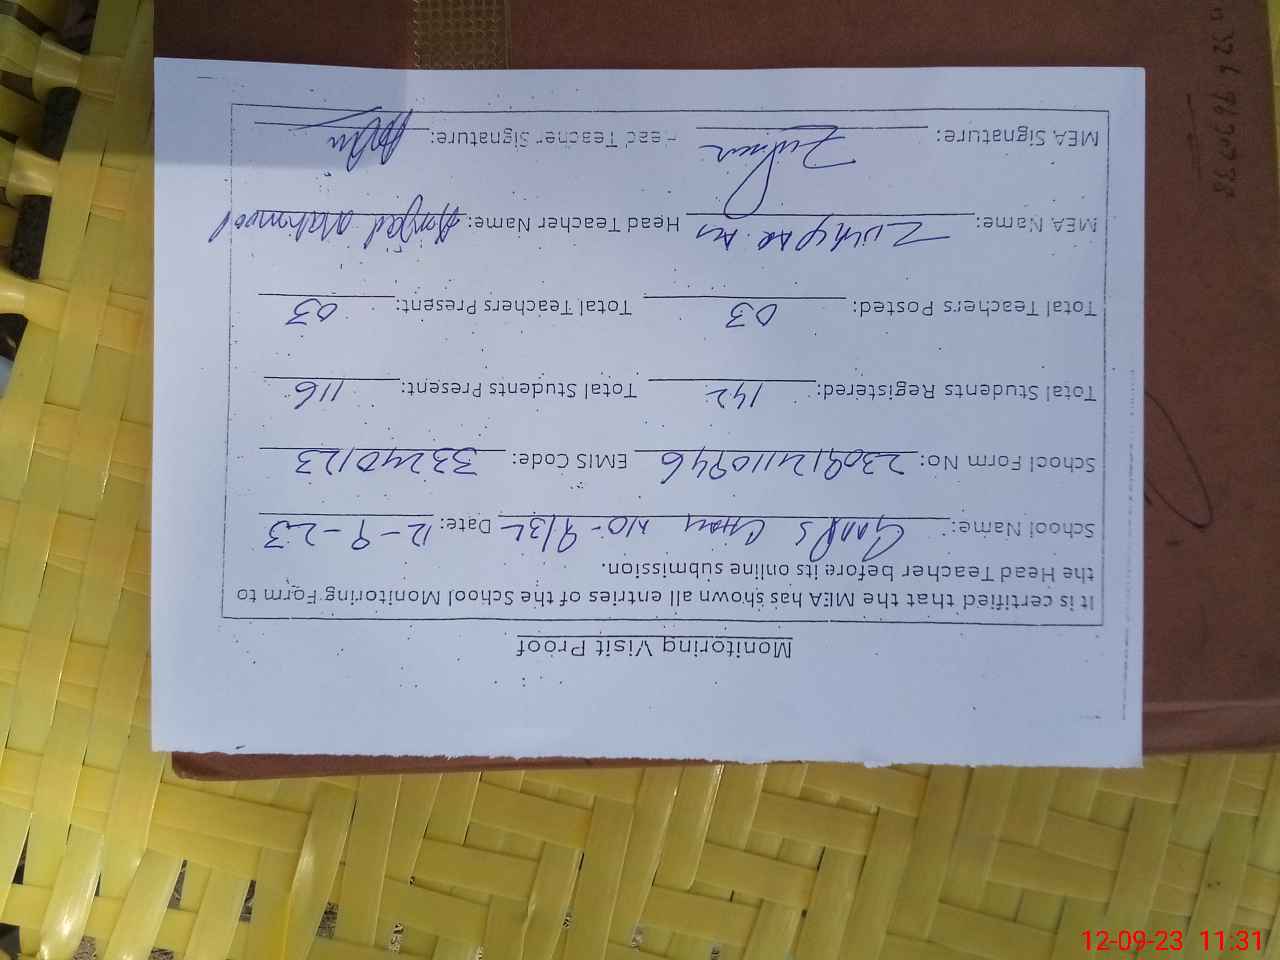 Monitoring Visit Proof
It is certified that the MEA has shown all entries of the School Monitoring Form to
the Head Teacher before its online submission.
School Name: GMMPS Chak No- 9/3L Date: 12-9-23
School Form No: 2309121109946 EMIS Code: 33240123
Total Students Registered: 142 Total Students Present: 116
Total Teachers Posted: 03 Total Teachers Present: 03
MEA Name: Zulfiqar Ali Head Teacher Name: Amjad Mahmood
MEA Signature: Head Teacher Signature:
12-09-23 11:31